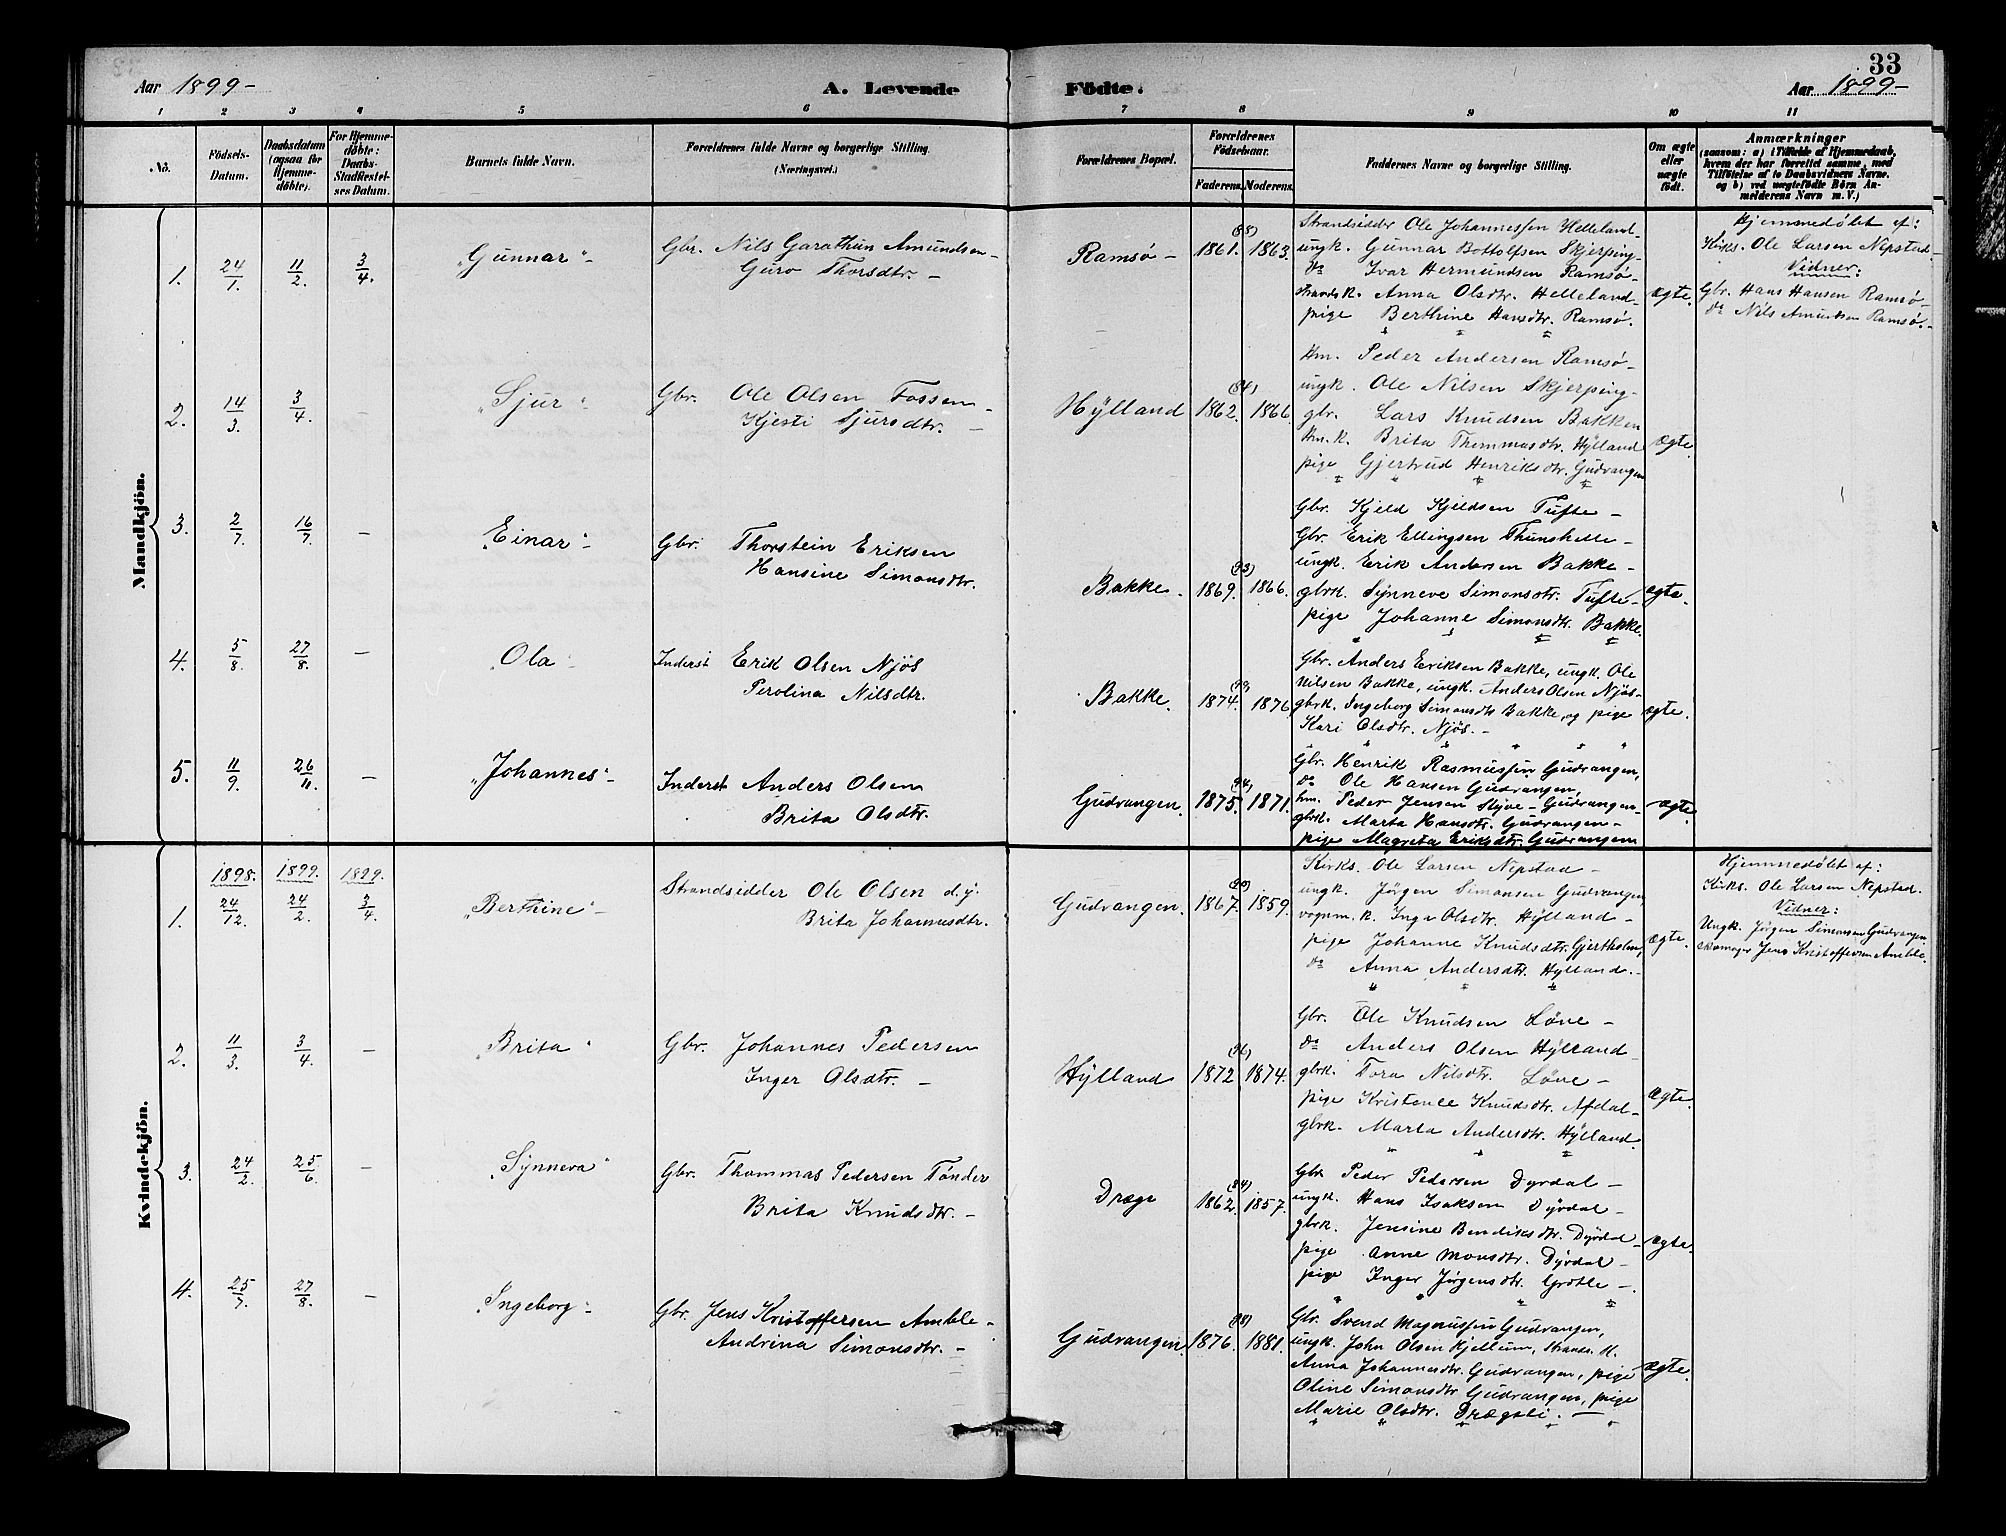 Aar 1899-
A. Levende Födte.
33
Aar 1899-
1 2 3 4 5 6 7 8 9 10 11
No.
Födsels-
Datum.
Daabsdatum
(ogsaa for
Hjemme-
döbte).
For Hjemme-
döbte:
Daabs-
Stadfæstel-
ses Datum.
Barnets fulde Navn.
Forældrenes fulde Navne og borgerlige Stilling.
(Næringsvei.)
Forældrenes Bopæl.
Forældrenes
Födselsaar.
Faderens. Moderens.
Faddernes Navne og borgerlige Stilling.
Om ægte
eller
uægte
födt.
Anmærkninger
(saasom: a) i Tilfælde af Hjemmedaab,
hvem der har forrettet samme, med
Tilföielse af to Daabsvidners Navne.
og b) ved uægtefödte Börn An-
melderens Navn m. V.)
Mandkjön.
1. 24/1. 11/2. 3/4. "Gunnar"-
Gbr. Nils Garathun Amundsen-
Guro Thorsdtr. -
Ramsø - 1861. (88) 1863.
Strandsidder Ole Johannessen Helleland-
ungk. Gunnar Bottolfsen Skjerping-
do Ivar Hermundsen Ramsø-
strandsk. Anna Olsdtr. Helleland-
pige Berthine Hansdtr. Ramsø.
ægte.
Hjemmedøbt af:
Kirks. Ole Larsen Nepstad-
Vidner:
Gbr. Hans Hansen Ramsø-
do Nils Amundsen Ramsø.-
2. 14/3. 3/4. - "Sjur"-
Gbr. Ole Olsen Fossen-
Kjesti Sjursdtr. -
Hylland 1862. (84) 1866.
Hm. Peder Andersen Ramsø-
ungk. Ole Nilsen Skjerping-
gbr. Lars Knudsen Bakken
Hm.k. Brita Thommasdtr. Hylland
pige Gjertrud Henriksdtr. Gudvangen
ægte.
3. 2/7. 16/7. - "Einar"-
Gbr. Thorstein Eriksen
Hansine Simonsdtr.
Bakke. 1869. (93) 1866.
Gbr. Kjeld Kjeldsen Tufte-
Gbr. Erik Ellingsen Thunshelle-
ungk. Erik Andersen Bakke-
gbrk. Synneve Simonsdtr. Tufte-
pige Johanne Simonsdtr. Bakke.
ægte.
4. 5/8. 27/8. - "Ola"-
Inderst Erik Olsen Njøs
Perolina Nilsdtr.
Bakke. 1874. 1876.
Gbr. Anders Eriksen Bakke, ungk. Ole
Nilsen Bakke, ungk. Anders Olsen Njøs-
gbrk. Ingeborg Simonsdtr Bakke, og pige
Kari Olsdtr. Njøs.-
ægte.
5. 11/9. 26/11. - "Johannes"-
Inderst Anders Olsen
Brita Olsdtr.
Gudvangen. 1875. (94) 1871.
Gbr. Henrik Rasmussen Gudvangen,
do Ole Hansen Gudvangen,
hm. Peder Jensen Styve-Gudvangen-
gbrk. Marta Hansdtr. Gudvangen-
pige Magreta Eriksdtr. Gudvangen
ægte.
Kvindekjön.
1898. 1899. 1899.
1. 24/12. 24/2. 3/4. "Berthine"-
Strandsidder Ole Olsen d.y.
Brita Johannesdtr.
Gudvangen. 1867. (90) 1859.
Kirks. Ole Larsen Nepstad-
ungk. Jørgen Simonsen Gudvangen,
vognm.k. Inga Olsdtr. Hylland-
pige Johanne Knudsdtr. Gjertholm,
do Anna Andersdtr. Hylland.-
ægte.
Hjemmedøbt af:
Kirks. Ole Larsen Nepstad.
Vidner:
Ungk. Jørgen Simonsen Gudvangen
skomager Jens Kristoffersen Amble.
2. 11/3. 3/4. - "Brita"
Gbr. Johannes Pedersen
Inger Olsdtr. -
Hylland 1872 (96) 1874.
Gbr. Ole Knudsen Løne-
do Anders Olsen Hylland-
gbrk. Tora Nilsdtr. Løne-
pige Kristense Knudsdtr. Afdal-
gbrk. Marta Andersdtr. Hylland.
ægte.
3. 24/2. 25/6. - "Synneva"
Gbr. Thommas Pedersen Tønder
Brita Knudsdtr. -
Dræge 1862. (84) 1857.
Gbr. Peder Pedersen Dyrdal-
ungk. Hans Isaksen Dyrdal-
gbrk. Jensine Bendiksdtr. Dyrdal-
pige Anne Monsdtr. Dyrdal-
pige Inger Jørgensdtr. Grøtle-.
ægte.
4. 25/7. 27/8. - "Ingeborg"-
Gbr. Jens Kristoffersen Amble-
Andrina Simonsdtr. -
Gudvangen. 1876. (98) 1881.
Gbr. Svend Magnussen Gudvangen,
ungk. John Olsen Kjellum, strands. k.
Anna Johannesdtr. Gudvangen, pige
Oline Simonsdtr Gudvangen, pige
Marie Olsdtr. Drægsli. -
ægte.